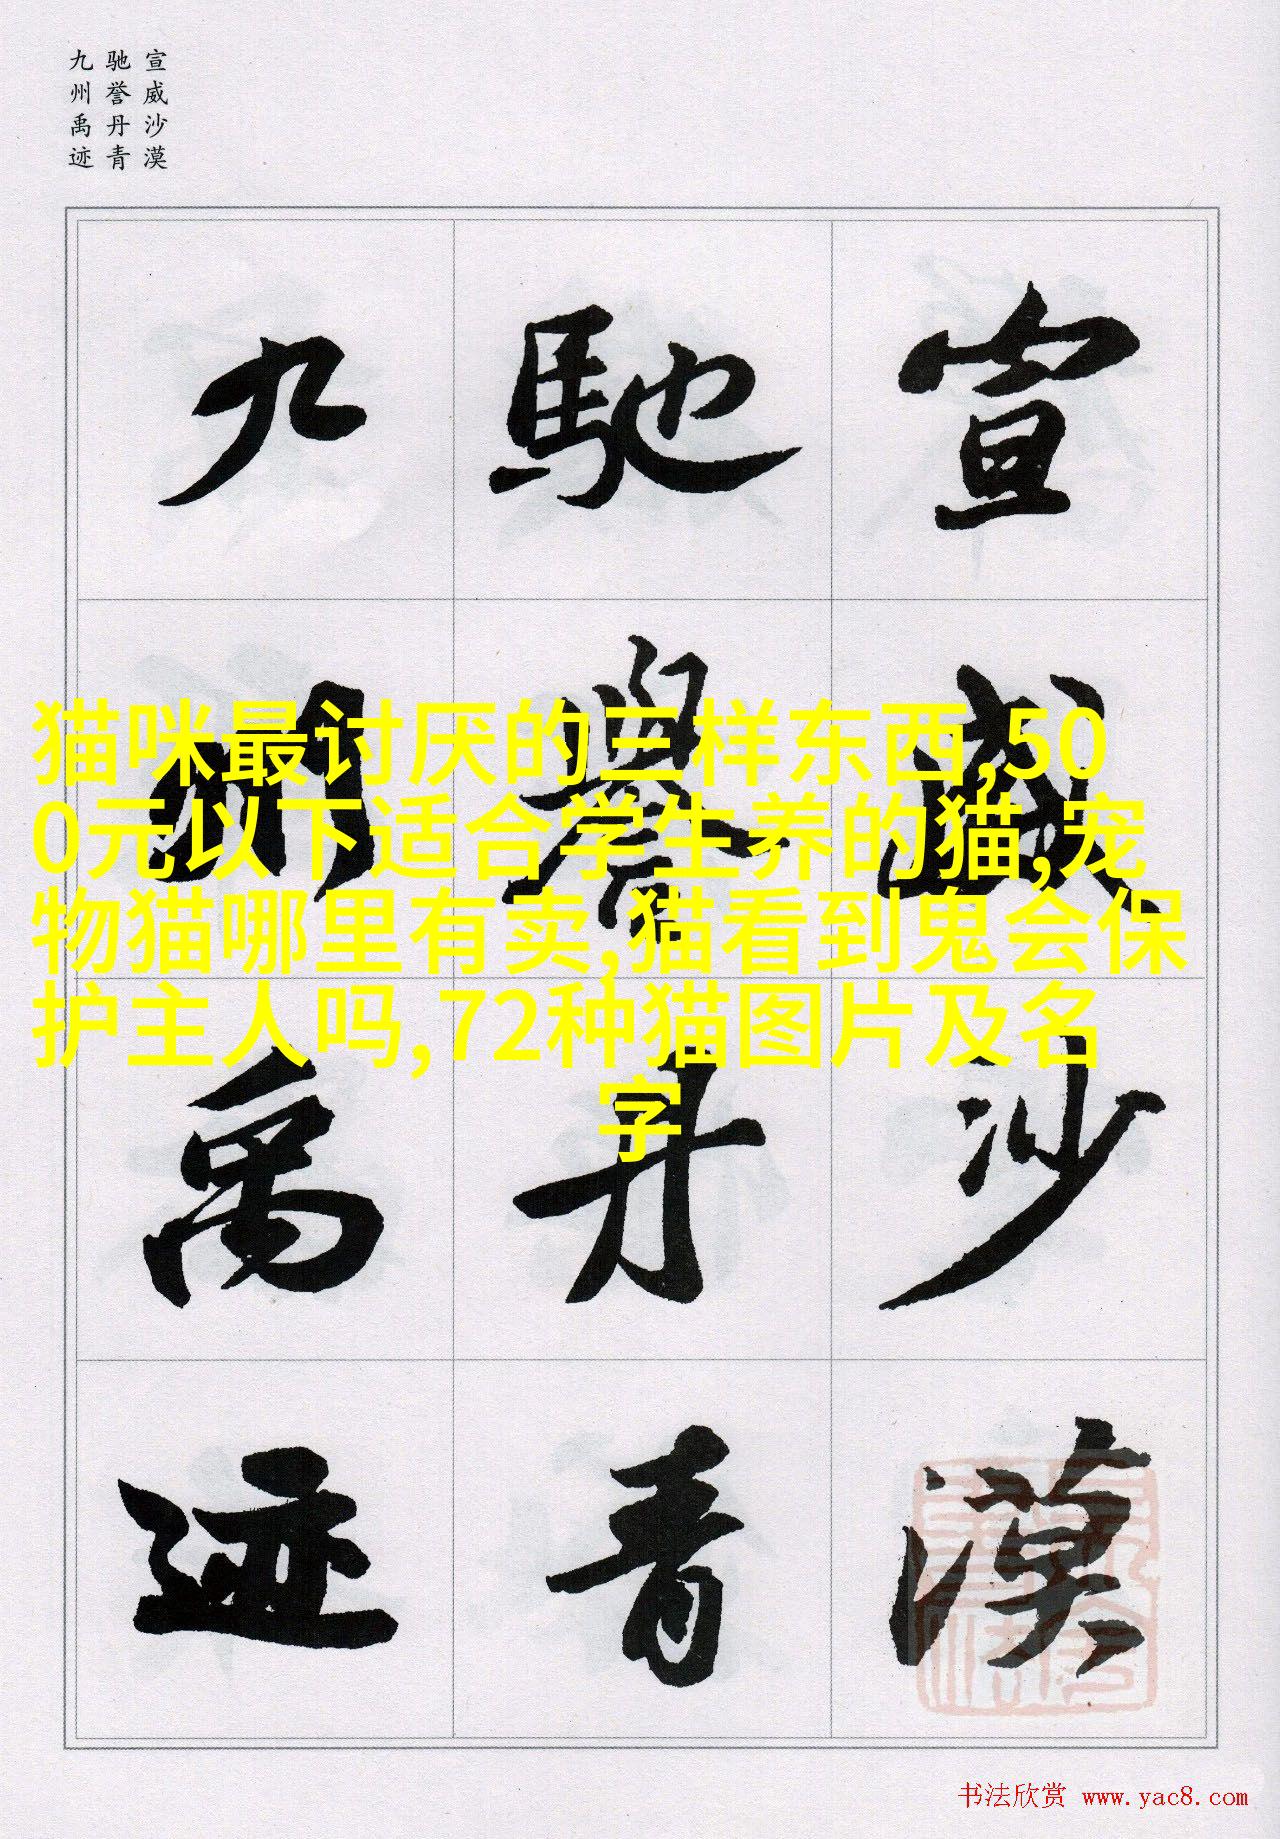 宣威沙漠
驰誉丹青
九州禹迹
宣威沙漠
馳譽丹青
九州禹迹
猫咪最讨厌的三样东西,50
0元以下适合学生养的猫,宠
物猫哪里有卖,猫看到鬼会保
护主人吗,72种猫图片及名
字
书法欣赏 www.yac8.com